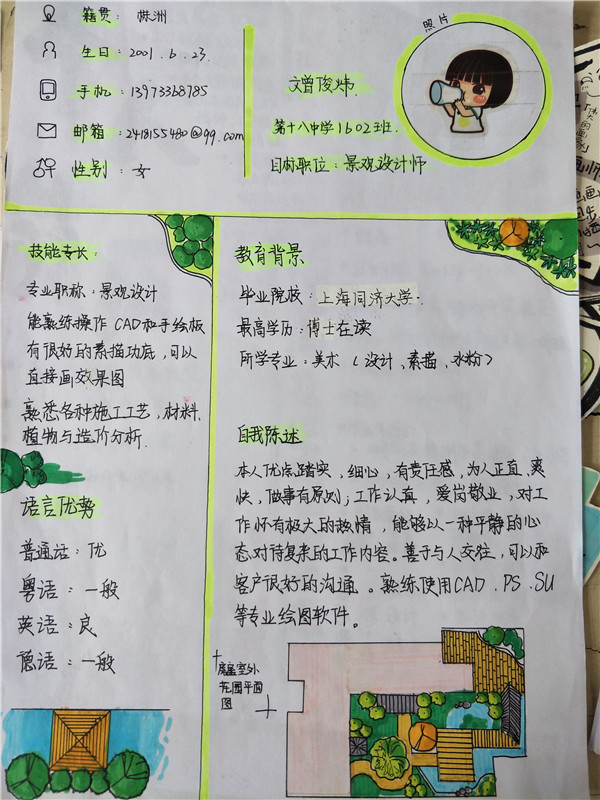 籍贯：株洲
生日：2001.6.23.
手机：13973368785
邮箱：2418155480@qq.com
性别：女
照片
文曾俊炜
第十八中学1602班.
目标职位：景观设计师
技能专长：
专业职称：景观设计
能熟练操作CAD和手绘板
有很好的素描功底，可以
直接画效果图
熟悉各种施工工艺，材料.
植物与造价分析.
语言优势
普通话：优
粤语：一般
英语：良
德语：一般
教育背景
毕业院校：上海同济大学.
最高学历：博士在读
所学专业：美术（设计、素描、水粉）
自我陈述
本人优点踏实，细心，有责任感，为人正直、爽
快，做事有原则；工作认真，爱岗敬业，对工
作怀有极大的热情，能够以一种平静的心
态对待复杂的工作内容。善于与人交往，可以和
客户很好的沟通。熟练使用CAD、PS、SU
等专业绘图软件。
房屋室外
花园平面
图